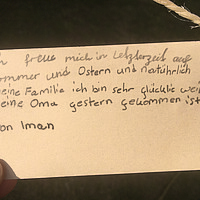 h freue mich in letzterzeit auf
ommer und Ostern und natührlich
eine Familie ich bin sehr glücklic weil
eine Oma gestern gekommen ist
on Iman